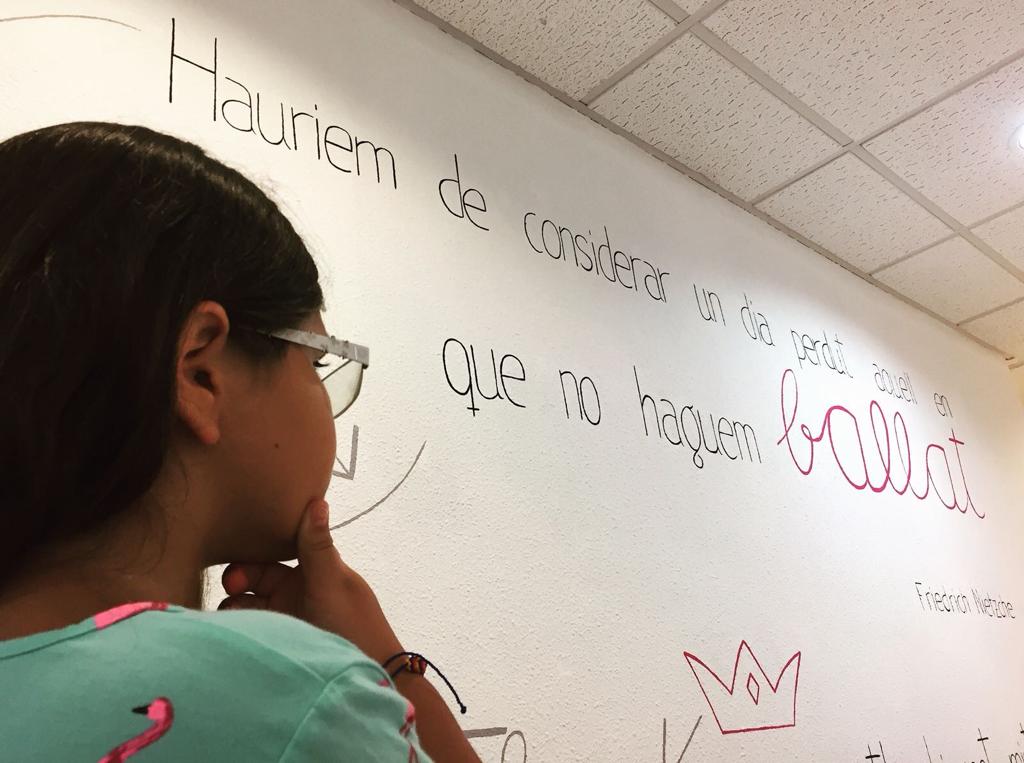 Hauriem de considerar un dia perdut aquell en
que no haguem ballat
Friedrich Nietzche